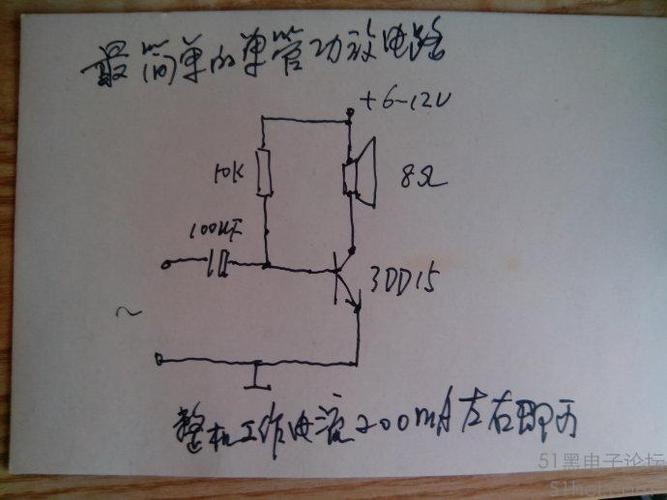 最简单的单管功放电路
+6-12V
10K
8Ω
100uF
3DD15
~
整机工作电流200mA左右即可
51黑电子论坛